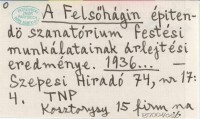 A Felsőhágin építen-
dő szanatórium festési
munkálatainak árlejtési
eredménye. 1936.... —
Szepesi Hiradó 74, nr 17:
4. TNP
15 firm na